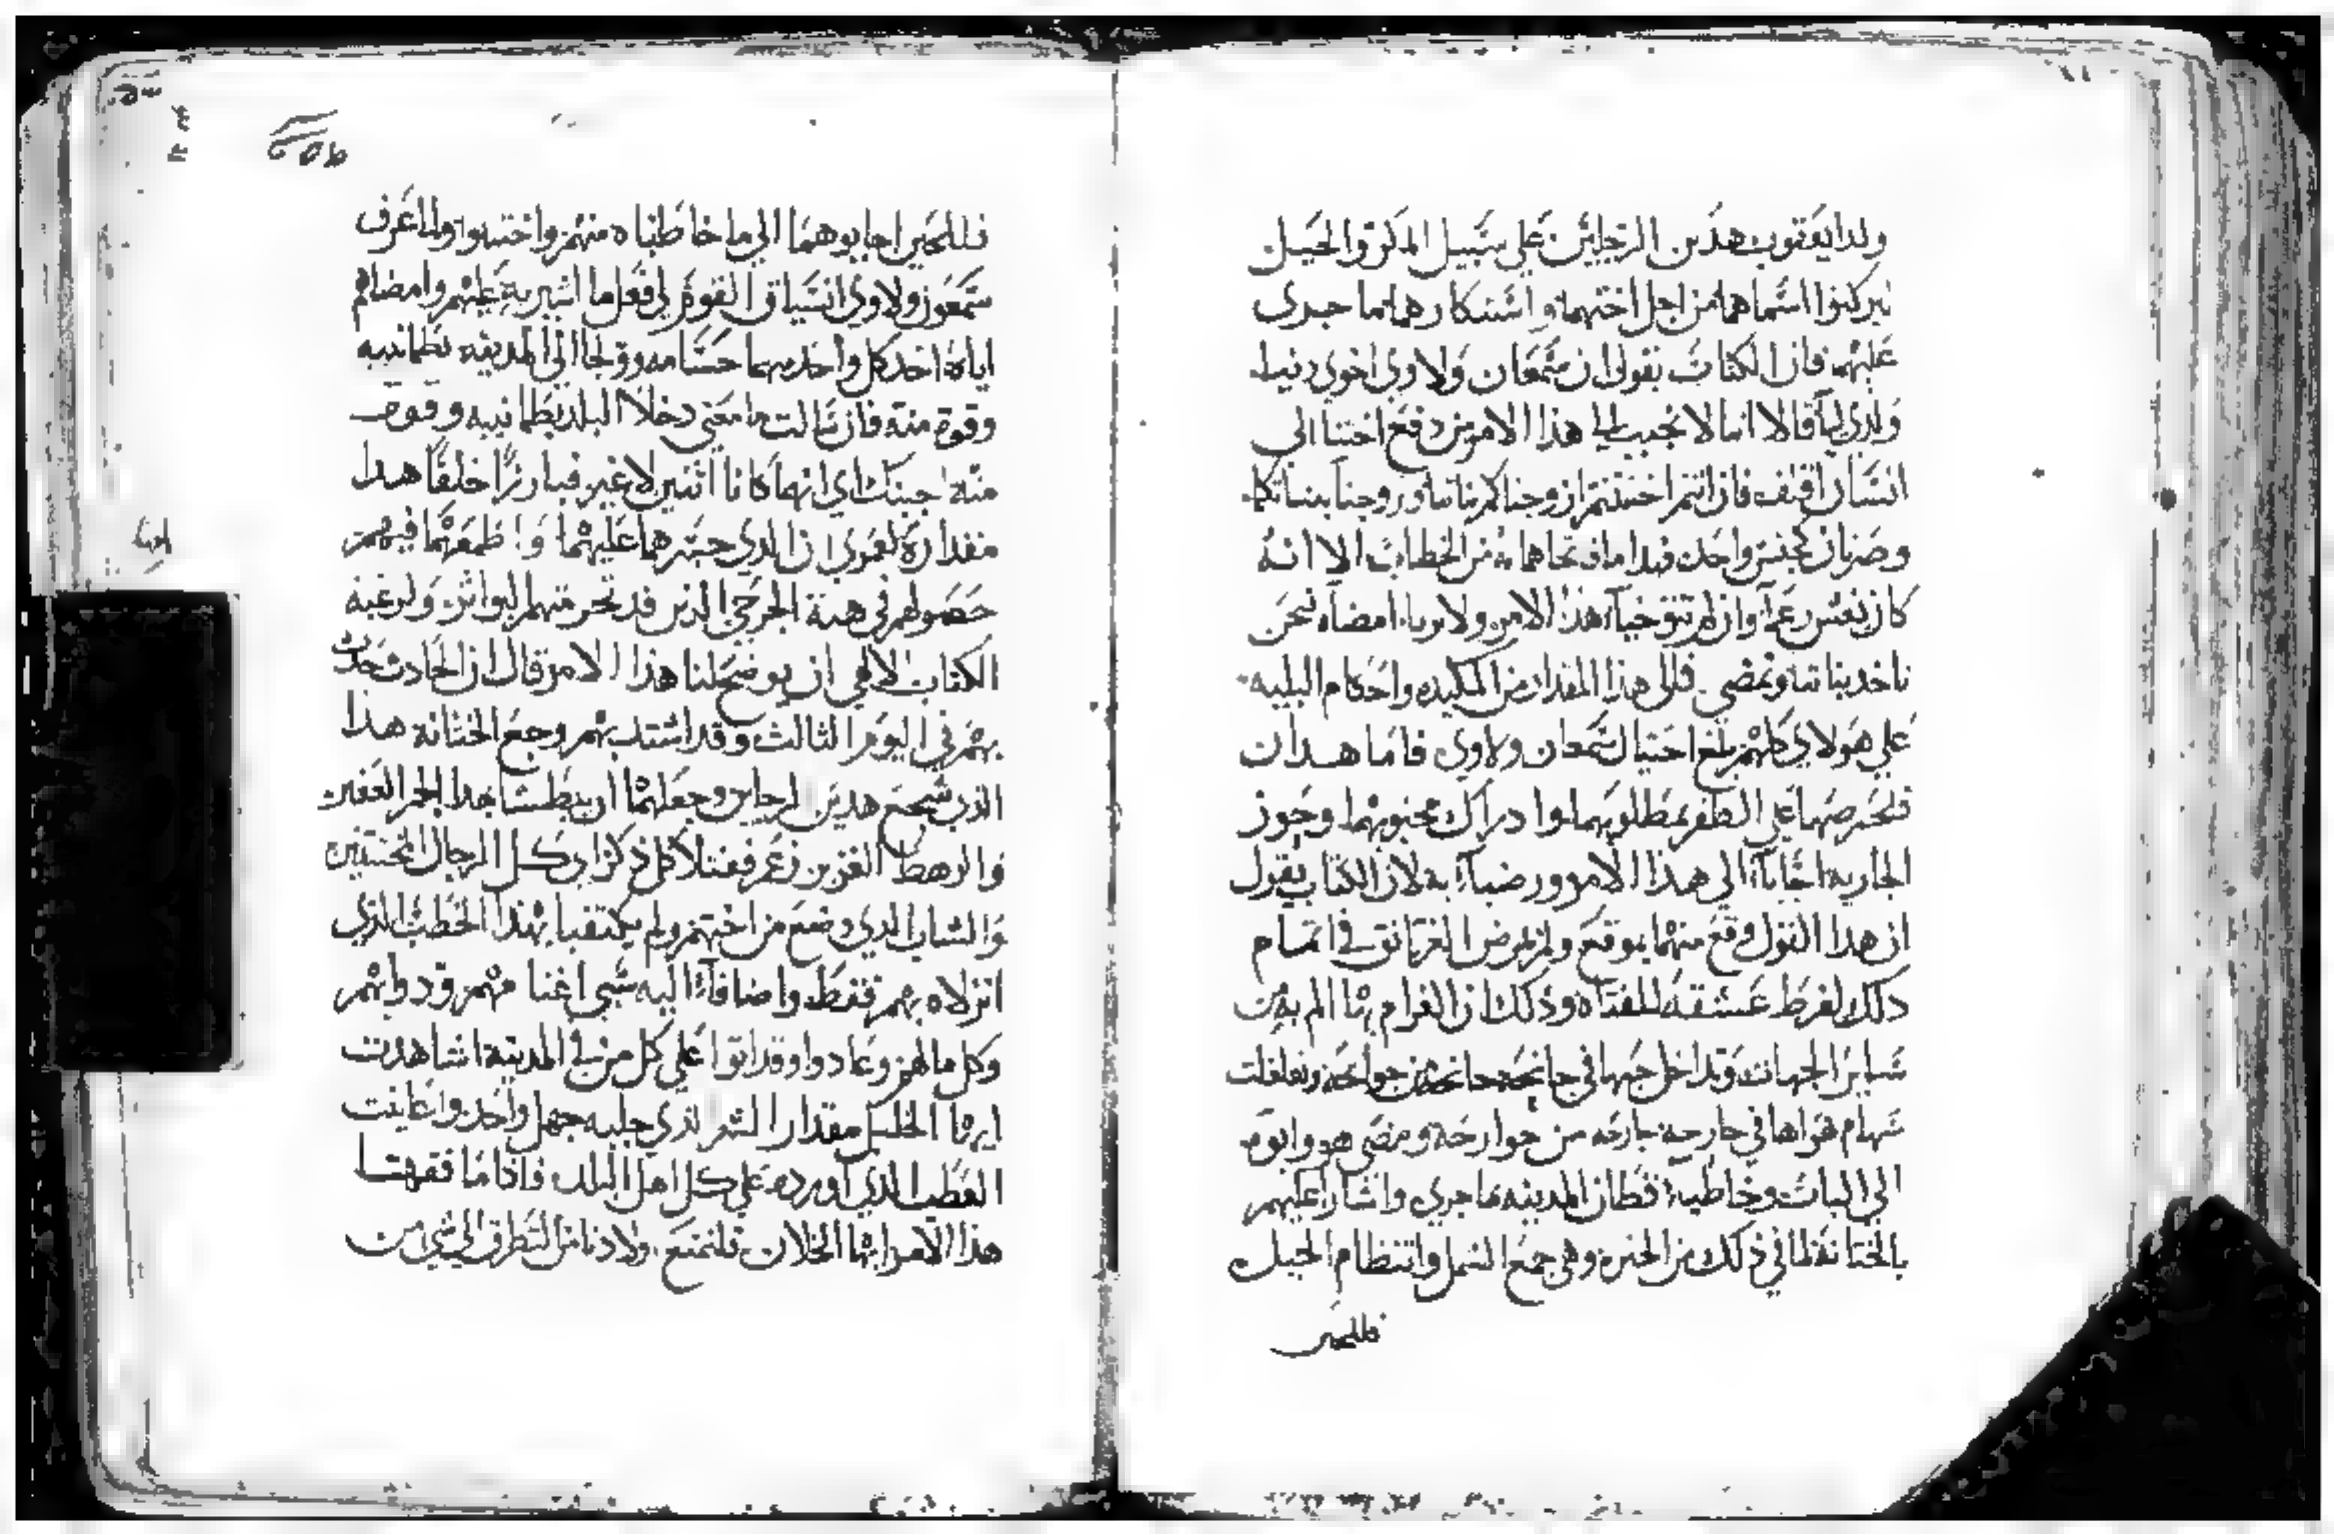 ولدا يعقوب هذين الرجلين علي سبيل المكر والحيل
اسماهما من اجل اختهما واستنكارهما ما جري
عليها فان الكتاب يقول ان شمعان ولاوي اخوي دنيا
ولدي ليا قالا اننا لا نجيب الي هذا الامر من دفع اختنا الي
انسان اقلف فان انتم اختتنتم ازوجناكم بناتنا وزوجنا بناتكم
وصرنا كجنس واحد فبدا ما فتحاها به من الخطاب الا انه
كان وان لم هذا الامر ولا امضاه نحن
ناخذ بناتنا ونمضي هذا المقدار من المكيده واحكام البليه
علي هولاي كلهم بلغ احتيال شمعان ولاوي فاما هدان
فلحرصهما علي الظفر بمطلوبهما وادراك محبوبهما وجوز
الجاريه اجابا الي هذا الامر ورضيا به لان الكتاب يقول
ان هذا القول وقع منهما بموقع ولم في اتمام
ذلك لفرط عشقه للفتاه وذلك ان الغرام بها الم به من
ساير الجهات وتداخل حبها في جانحه جانحه من جوانحه وتغلغلت
سهام هواها في جارحه جارحه من جوارحه ومضي هو وابوه
الي الباب وخاطبا قطان المدينه بما جري واشارا عليهم
بالختانه لما في ذلك من الخيره وهي جمع الشمل وانتظام الحبل
فللحين
فللحين اجابوهما الي ما خاطباه منهم واختتنوا ولما عرف
شمعون ولاوي انسياق القوم لفعل ما اشير به عليهم وامضاهم
اياه اخد كل واحد منهما حسامه وولجا الي المدينه بطمانيه
وقوه منه فان سالت ما معني دخلا البلد بطمانيه وقوه
منه اجبتك اي انهما كانا اثنين لا غير فبارزا خلقا هدا
مقداره لعمري ان الدي جسرهما عليهما واطمعهما فيهم
حصولهم في هية الجرحي الذين قد ولرغبه
الكتاب الالاهي ان يوضح لنا هذا الامر قال ان الحادث حدث
بهم في اليوم الثالث وقد اشتد بهم وجع الختانه هدا
الذي شجع هدين الرجلين وجعلهما ان يبطشا بهدا الجم الغفير
والرهط فقتلا كل ذكر اي كل الرجال المختتنين
والشاب الدي وضع من اختهم ولم يكتفيا بهذا الخطب الذي
انزلاه بهم فقط واضافا اليه سبي اغنامهم ودوابهم
وكل ما لهم وعادوا وقد اتوا علي كل من في المدينة اشاهدت
ايها الخليل مقدار الشر الذي جلبه جهل واحد واعاينت
العطب الذي اورده علي كل اهل البلد فاذا ما فقهنا
هذا الامر ايها الخلان فلنمنع اولادنا من التطرق الي شي من